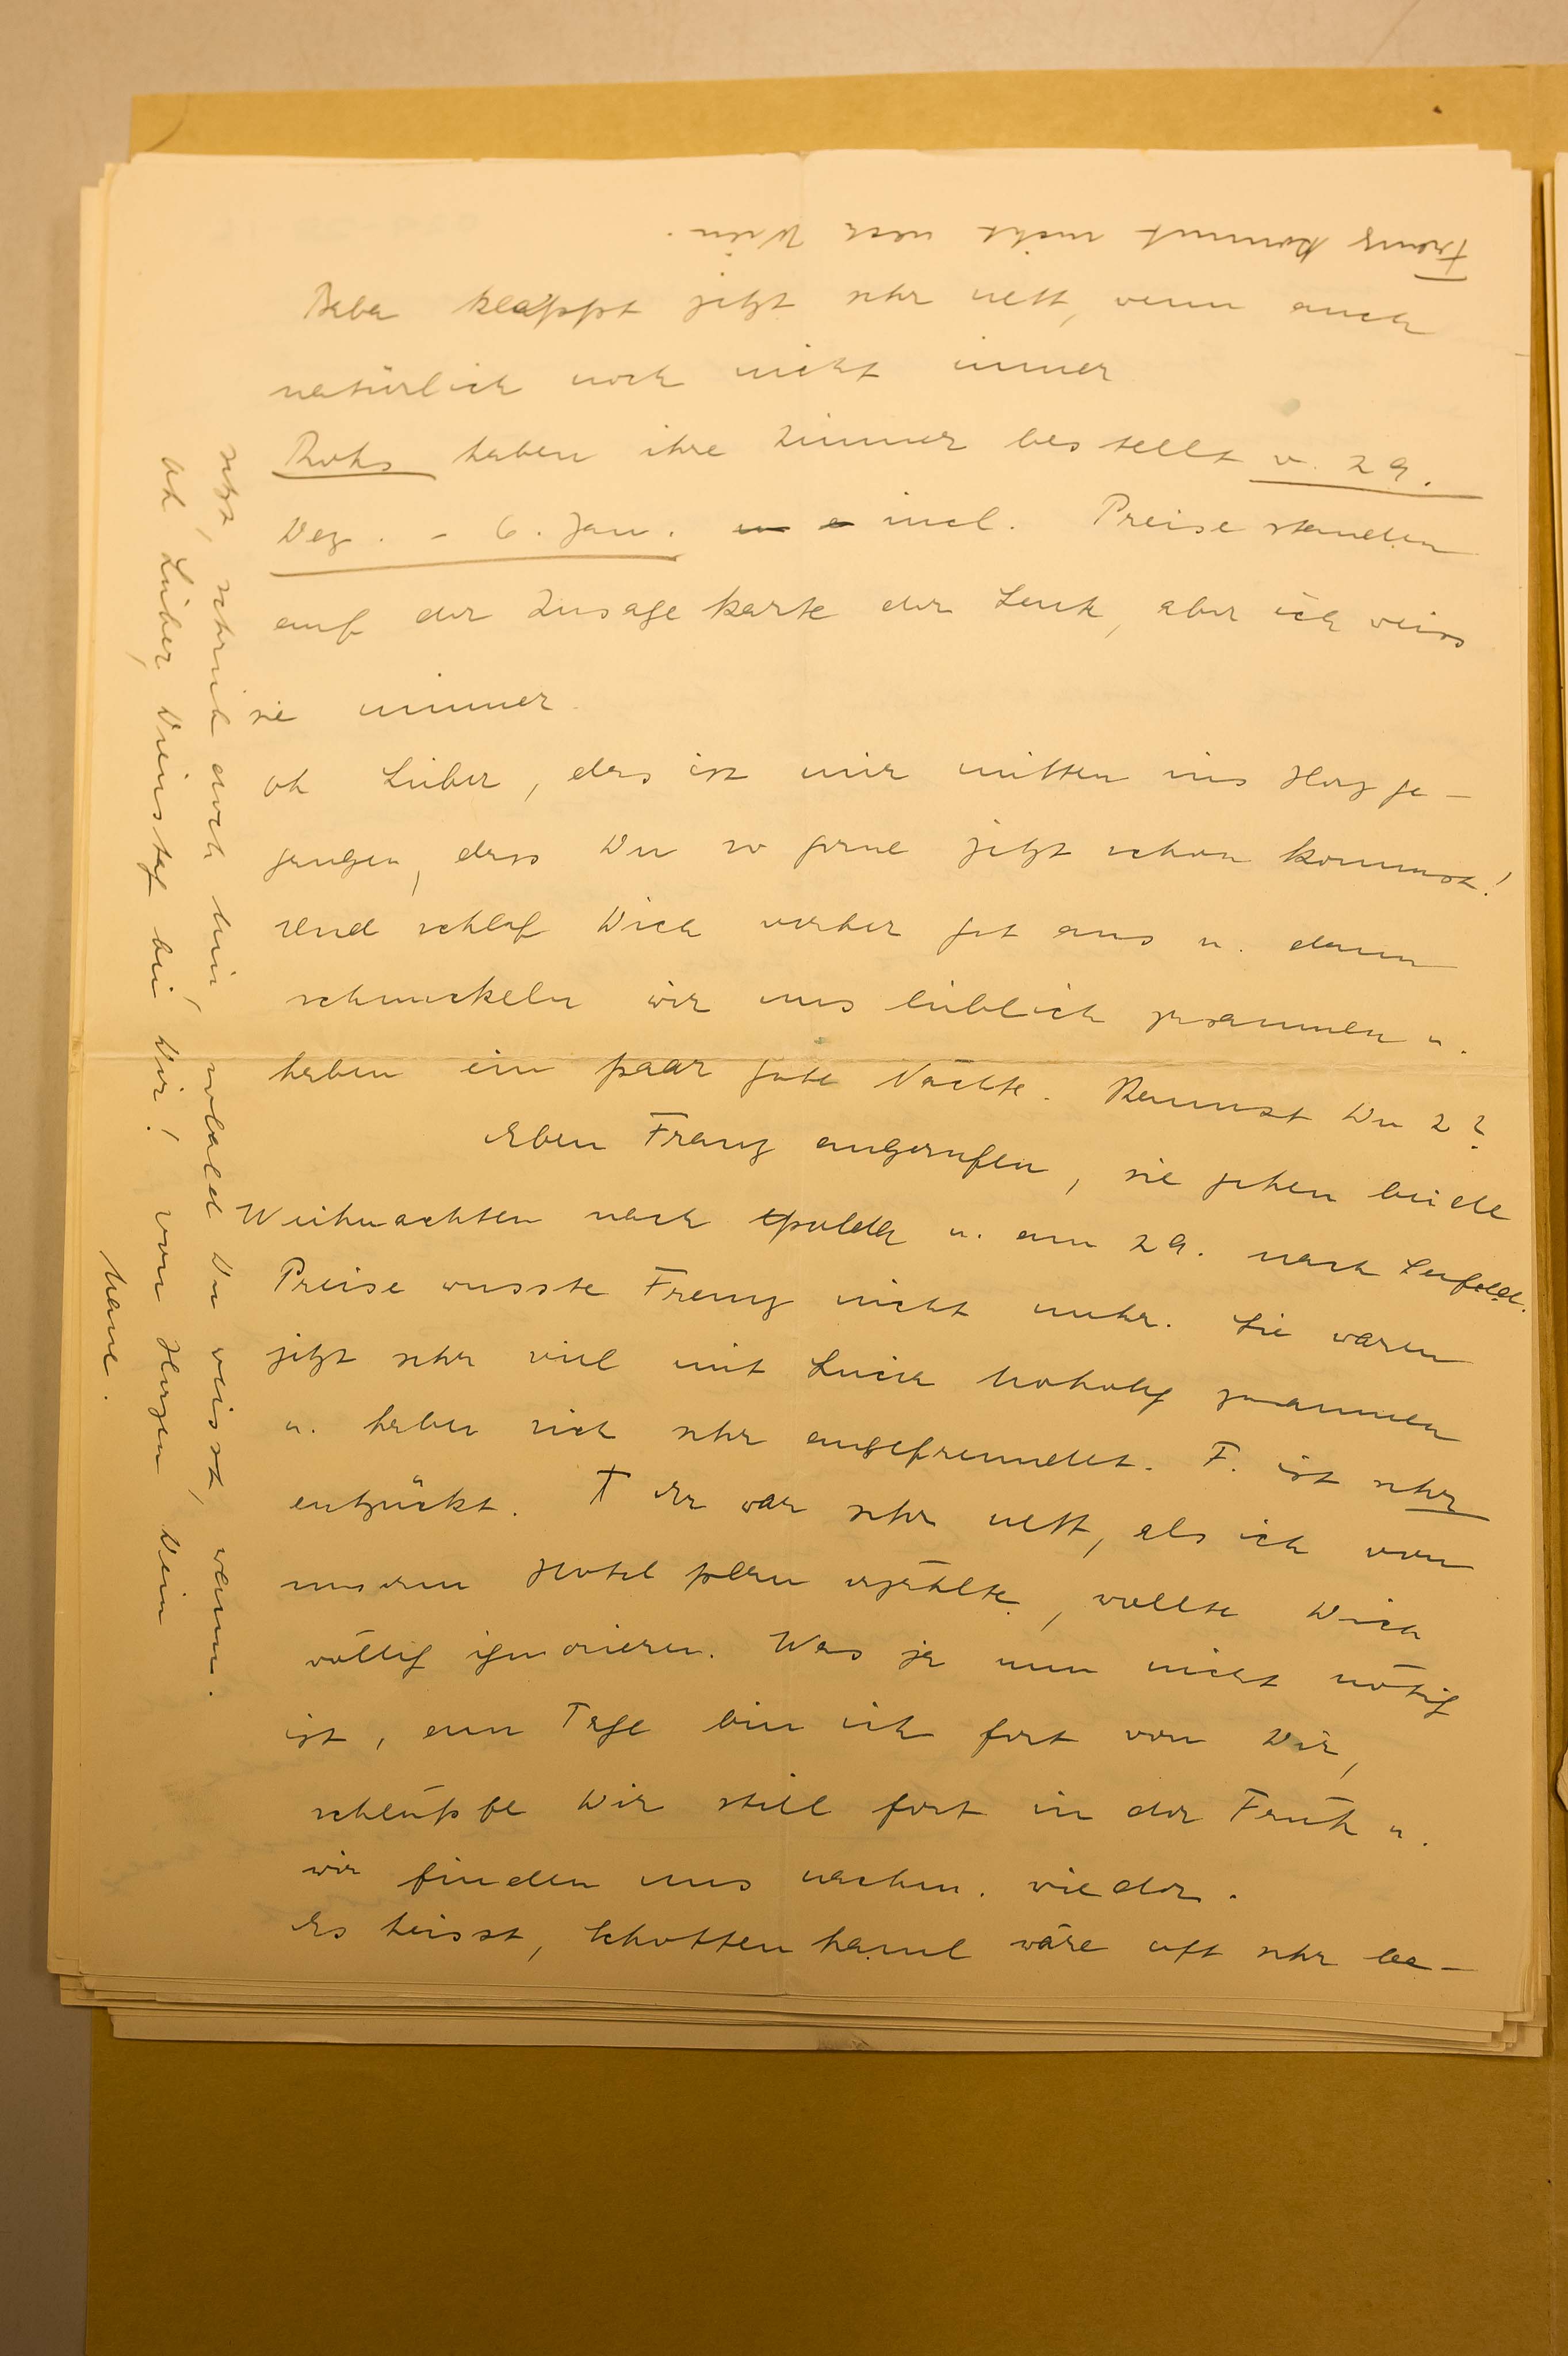 Franz kommt nicht nach Wien.
klappt jetzt sehr nett, wenn auch
natürlich noch nicht immer
Rohs haben ihre Zimmer bestellt v. 29.
Dez. - 6. Jan. incl. Preise standen
auf der Zusagekarte der Leute, aber ich weiss
sie nimmer.
oh Lieber, das ist mir mitten ins Herz ge-
gangen, dass Du so gerne jetzt schon kommst!
Und schlaf Dich vorher gut aus u. dann
schmuckeln wir uns lieblich zusammen u.
haben ein paar gute Nächte. Kannst Du 2?
Eben Franz angerufen, sie gehen beide
Weihnachten nach u. am 29. nach
Preise wusste Franz nicht mehr. Sie waren
jetzt sehr viel mit Lucia Moholy zusammen
u. haben sich sehr angefreundet. F. ist sehr
entzückt. Er war sehr nett, als ich von
unserem Hotelplan erzählte, wollte Dich
völlig ignorieren. Was ja nun nicht nötig
ist, am Tage bin ich fort von Dir,
schlüpfe Dir still fort in der Früh u.
wir finden uns nachm. wieder.
Es heisst, Schottenhaml wäre oft sehr be-
setzt, schreib doch hin, sobald Du weisst, wann.
oh Lieber, Dienstag bei Dir! von Herzen Dein